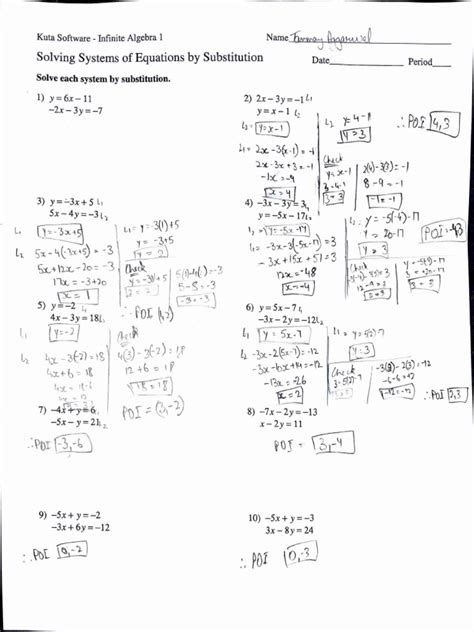 Kuta Software - Infinite Algebra 1
Name
Solving Systems of Equations by Substitution
Date Period
Solve each system by substitution.
1) y = 6x - 11
-2x - 3y = -7
2) 2x - 3y = -1 L1
y = x - 1 L2
L2 = y = x - 1
L1 = 2x - 3(x - 1) = -1
2x - 3x + 3 = -1
-1x = -4
x = 4
L2 y = 4 - 1
y = 3
Check
y = x - 1
3 = 4 - 1
3 = 3
2(4) - 3(3) = -1
8 - 9 = -1
-1 = -1
∴ POI 4,3
3) y = -3x + 5 L1
5x - 4y = -3 L2
L1 y = -3x + 5
L2 5x - 4(-3x + 5) = -3
5x + 12x - 20 = -3
17x = -3 + 20
x = 1
L1 = y = -3(1) + 5
y = -3 + 5
y = 2
Check
y = -3(1) + 5
2 = 2
5(1) - 4(2) = -3
5 - 8 = -3
-3 = -3
∴ POI (1,2)
4) -3x - 3y = 3 L1
y = -5x - 17 L2
L2 = y = -5x - 17
L1 = -3x - 3(-5x - 17) = 3
-3x + 15x + 51 = 3
12x = -48
x = -4
L2 : y = -5(-4) - 17
y = 20 - 17
y = 3
Check
12 - 9 = 3
3 = 3
y = -5(-4) - 17
3 = 20 - 17
3 = 3
5) y = -2 L1
4x - 3y = 18 L2
L1 y = -2
L2 4x - 3(-2) = 18
4x + 6 = 18
4x = 18 - 6
4(3) - 3(-2) = 18
12 + 6 = 18
18 = 18
6) y = 5x - 7 L1
-3x - 2y = -12 L2
L1 y = 5x - 7
L2 -3x - 2(5x - 7) = -12
-3x - 10x + 14 = -12
-13x = -26
x = 2
L1 = y = 5(2) - 7
y = 3
Check
3 = 5(2) - 7
3 = 3
-3(2) - 2(3) = -12
-6 - 6 = -12
-12 = -12
∴ POI 2,3
7) -4x + y = 6
-5x - y = 21
∴ POI -3,-6
8) -7x - 2y = -13
x - 2y = 11
POI = 3,-4
9) -5x + y = -2
-3x + 6y = -12
∴ POI 0,-2
10) -5x + y = -3
3x - 8y = 24
∴ POI 0,-3